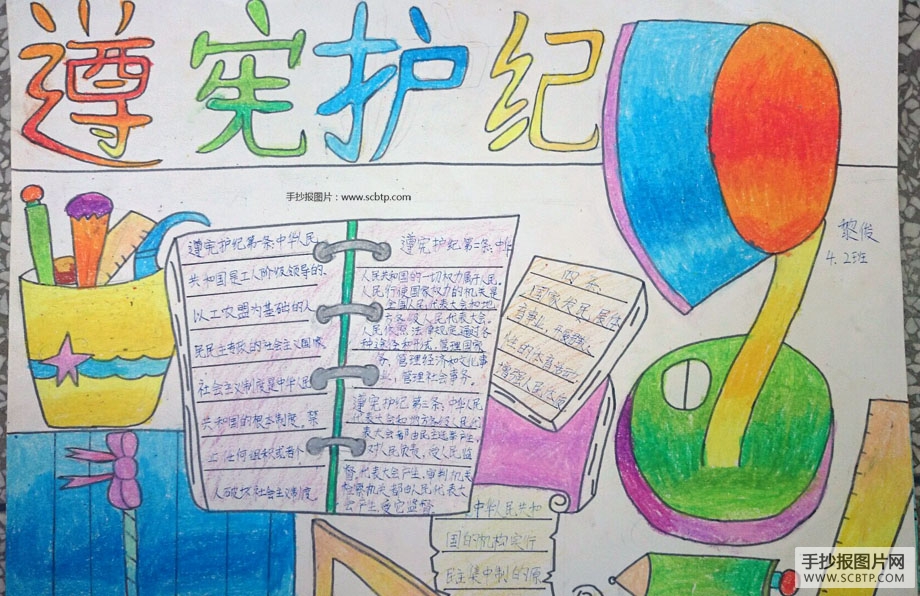 遵宪护纪
手抄报图片：www.scbtp.com
俊
4.2班
遵宪护纪第一条：中华人民
共和国是工人阶级领导的、
以工农盟为基础的人
民民主专政的社会主义国家
社会主义制度是中华人民
共和国的根本制度。禁
止任何组织或者个
人破坏社会主义制度
遵宪护纪第二条：中华
人民共和国的一切权力属于人民。
人民行使国家权力的机关是
全国人民代表大会和地
方各级人民代表大会。
人民依照法律规定通过各
种途径和形式，管理国家
务，管理经济和文化事
业，管理社会事务。
遵宪护纪第三条：中华人民
代表大会和地方各级人民代
表大会都由民主选举产生，
对人民负责，受人民监
督，代表大会产生，审判机关
检察机关都由人民代表大
会产生，受它监督
国家发展体
育事业，开展群众
性的体育活动，
增强人民体质
中华人民共和
国的机构实行
民主集中制的原
手抄报图片网
WWW.SCBTP.COM